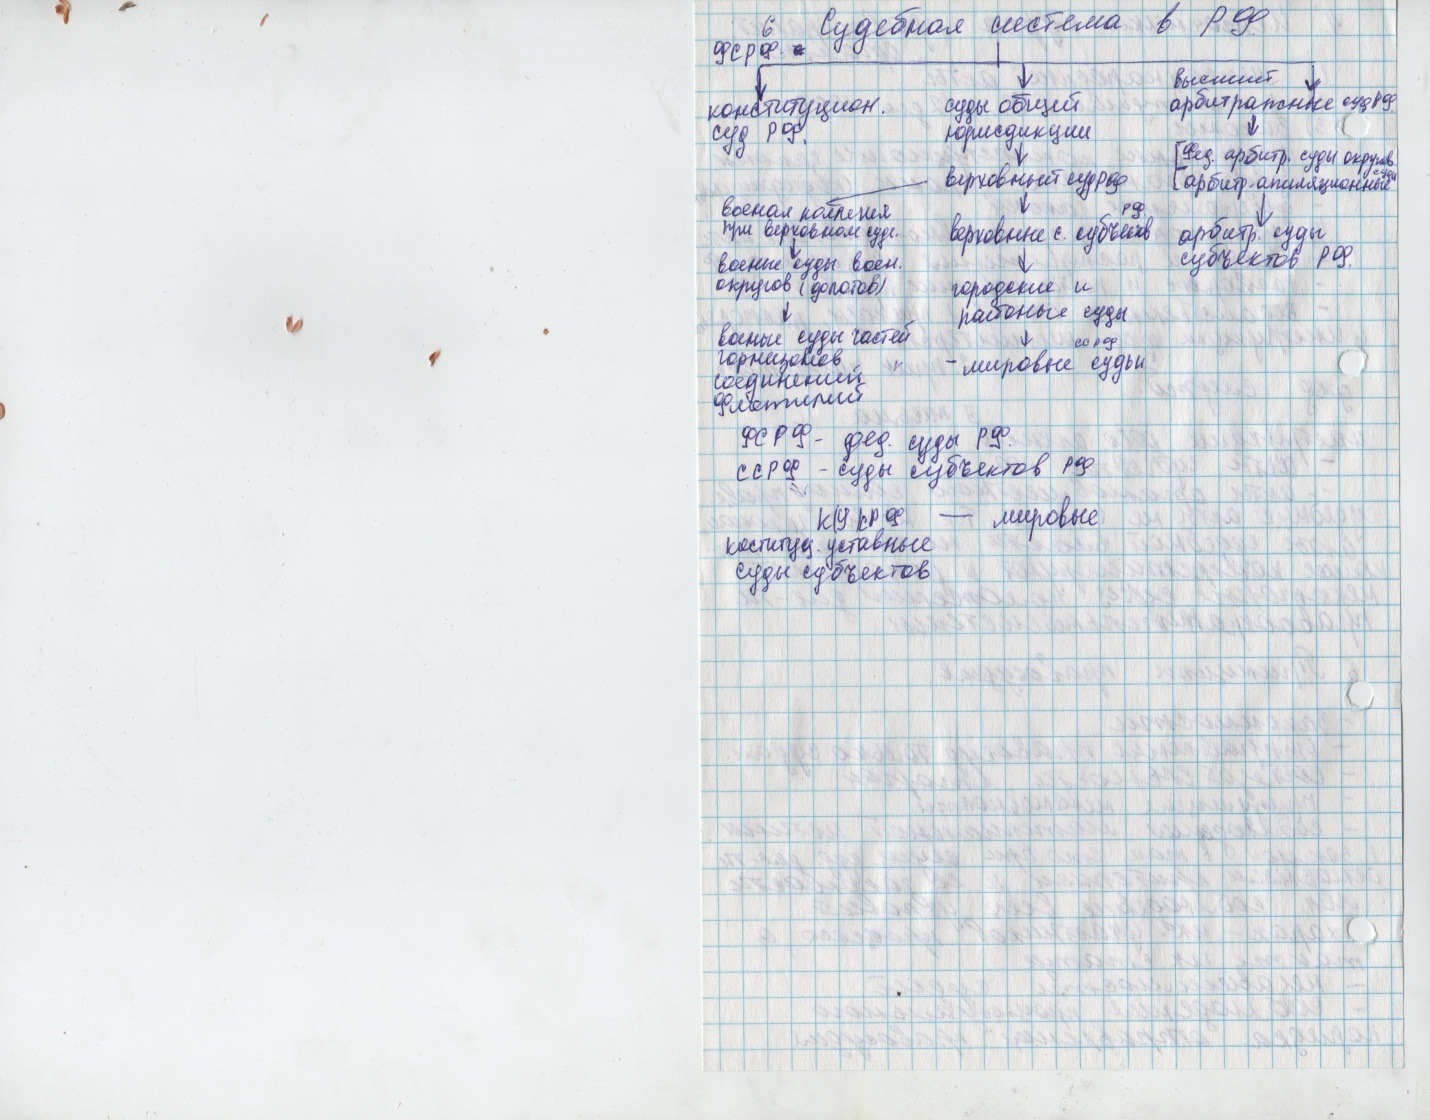 6 Судебная система в РФ
ФСРФ.
конституцион.
суд РФ.
военая коллегия
при верховном суде.
военые суды воен.
округов (
военые суды частей
горнизонов
соединений
флотилий
суды общий
юрисдикции
верховный суд РФ
верховные с. субъектов РФ
городские и
районые суды
ссрф
- мировые судьи
высший
арбитражные суд РФ.
[Фед. арбитр. суды округов
[арбитр. апиляционные суды
арбитр. суды
субъектов РФ.
ФСРФ - фед. суды РФ.
ССРФ - суды субъектов РФ
— мировые
коституц. уставные
суды субъектов